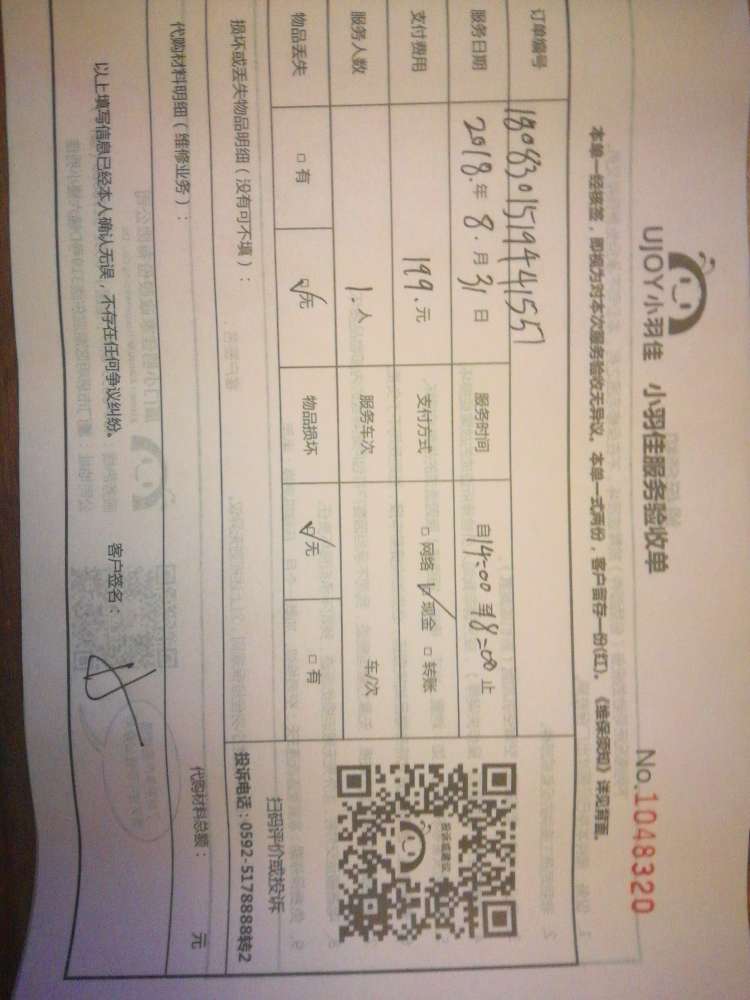 UJOY小羽佳 小羽佳服务验收单 No.1048320
本单一经核签，即视为对本次服务验收无异议。本单一式两份，客户留存一份(红)。《维保须知》详见背面。
订单编号 180830151944155
服务日期 2018.年 8.月 31日 服务时间 自14:00 到18:00 止
支付费用 199.元 支付方式 □ 网络 ☑ 现金 □ 转账
服务人数 1.人 服务车次 车/次
物品丢失 □ 有 ☑无 物品损坏 ☑无 □ 有
投诉或建议
扫码评价或投诉
损坏或丢失物品明细（没有可不填）： 投诉电话：0592-5178888转2
代购材料明细（维修业务）： 代购材料总额： 元
以上填写信息已经本人确认无误，不存在任何争议纠纷。 客户签名：